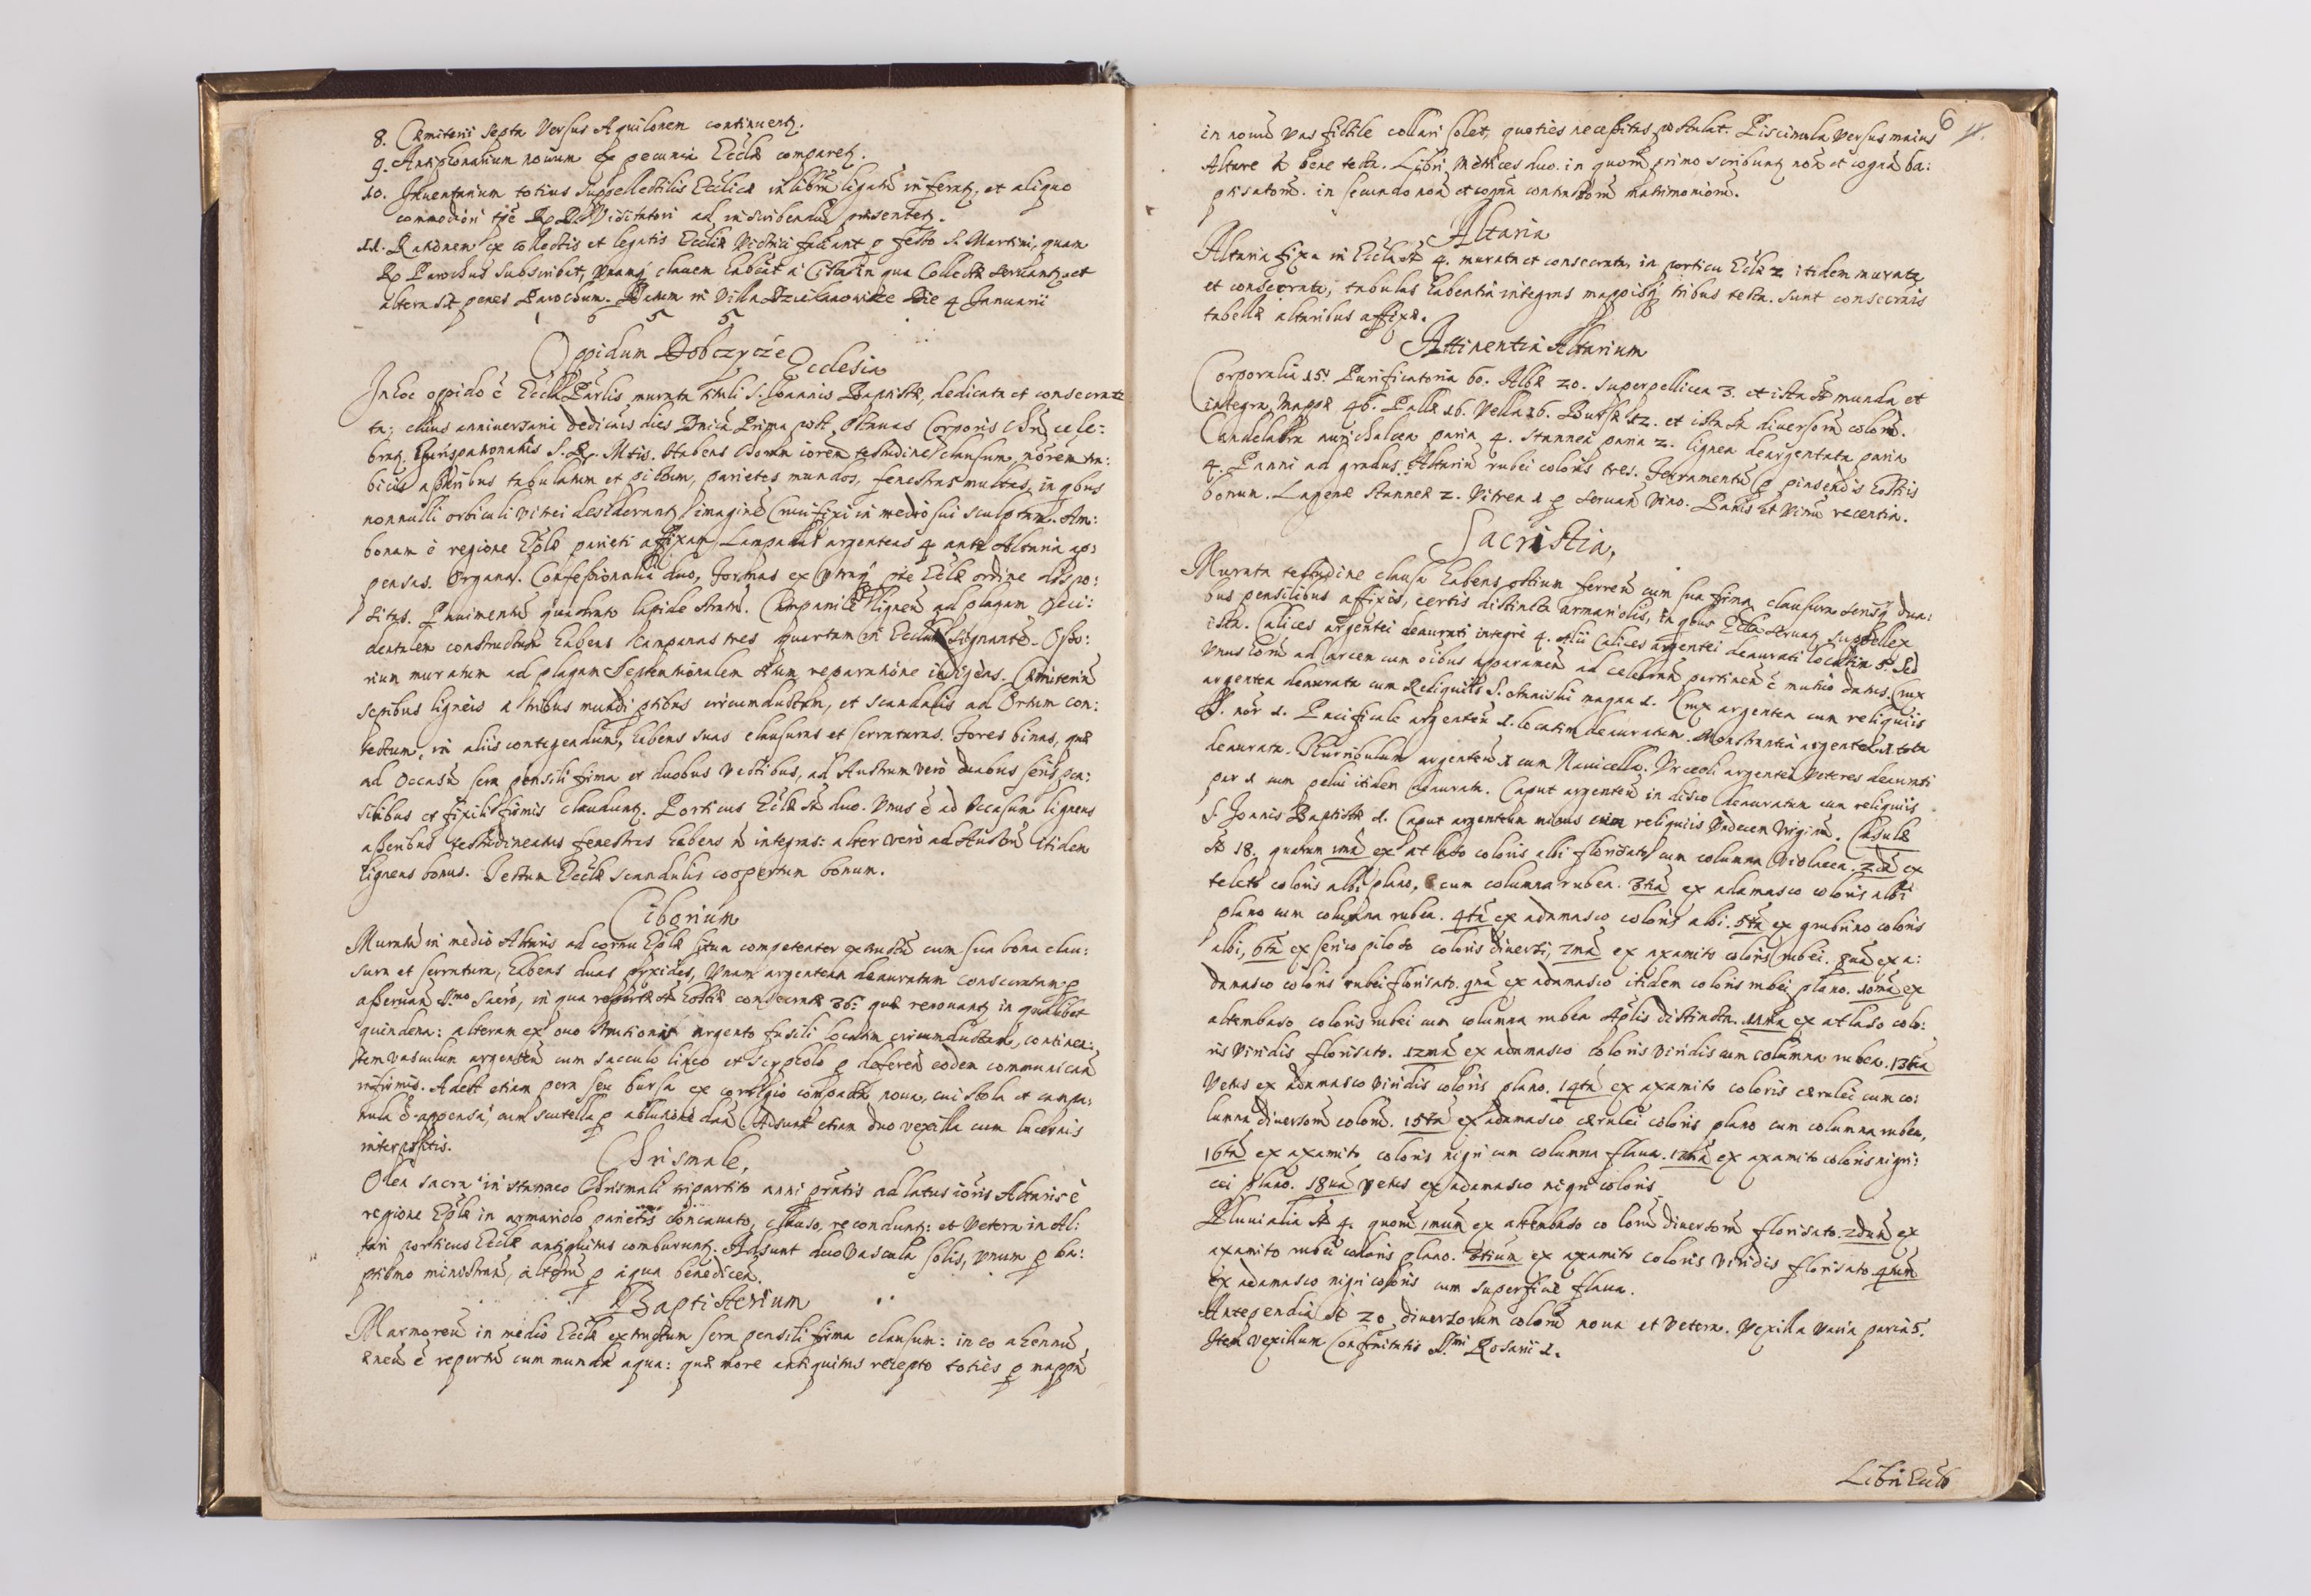 8. Cæmiterii septa versus Aquilonem continuent̃.
9. Antiphonalium nouum ex pecunia Ecclæ comparet̃.
10. Inuentarium totius suppellectilis Eccliæ in librũ ligatũ inferat̃, et aliquo
commodiori tp̃e R. D. Visitatori ad inscribendũ præsentet̃.
11. Rationem ex collectis et legatis Eccliæ Victrici faciant p festo S. Martini, quam
R. Parochus subscribat, vnamq̃ clauem habeat a Cista in qua Collectæ seruant̃, et
altera sit penes Parochum. Datum in Villa Dziekanowice Die 4 Januarii
1 6 5 5
Oppidum Dobczyce Ecclesia
In hoc oppido ẽ Eccla Parlis murata tituli S. Ioannis Baptistæ, dedicata et consecrata
ta; cuius anniuersaria dedicãis dies Dnica Prima post Octauas Corporis Chri cele:
brat̃. Iurispatronatus S. R. Mtis. Habens Chorum iorem testudine clausum, norem tra:
bicus asseribus tabulatum et pictum, parietes mundos, fenestras multas, in qbus
nonnulli orbiculi vitrei desiderant̃, imaginẽ Crucifixi in medio sui sculptam. Am:
bonam è regione Eplæ parieti affixam, Lampades argenteas 4 ante Altaria ap:
pensas. Organa. Confessionalia duo, formas ex vtraq̃ pte Eclæ ordine dispo:
sitas. Pauimentũ quadrato lapide stratũ. Campanile ligneũ ad plagam Occi:
dentalem constructum habens Campanas tres quartam in Eccla signantẽ. Osso:
rium muratum ad plagam Septentrionalem situm reparatione indigens. Cæmiteriũ
sepibus ligneis a tribus mundi ptibus circumductum, et scandalis ad Ortum con:
tectum, in aliis contegendum, habens suas clausuras et serraturas. Fores binas, quæ
ad Occasũ sera pensili firma et duobus vectibus, ad Austrum verò duabus seris pen:
silibus et fixili firmis claudunt̃. Porticus Eclæ st̃ duo. Vnus ẽ ad Occasum ligneus
asseribus testudineatus fenestras habens ñ integras: alter verò ad Austrũ itidem
ligneus bonus. Tectum Ecclæ scandulis coopertum bonum.
Ciborium
Muratũ in medio Altaris ad cornu Eplæ situm competenter extructũ cum sua bona clau:
sura et serratura, habens duas pyxides, vnam argenteam deauratam consecratam p
asseruanã Ssmo Sacro, in qua repertæ st̃ hostiæ consecratæ 36: quæ renouant̃ in qualibet
quindena: alteram ex ouo struthionis argento fusili locatim circumductam, continen:
tem vasculum argenteũ cum sacculo lineo et scyphulo p deferẽn eodem communicanã
infirmis. Adest etiam pera seu bursa ex corrigio compacta noua, cui stola et campa:
nula ẽ appensa, cum scutella p ablutione danã. Adsunt etiam duo vexilla cum lucernis
interpositis.
Chrismale,
Olea sacra in stanneo Chrismali tripartito anni prntis ad latus ioris Altaris è
regione Eplæ in armariolo parietis concauato, clauso, recondunt̃: et vetera in Al:
tari porticus Ecclæ antiquitus comburunt̃. Adsunt duo vascula solis, vnum p ba:
ptismo ministranã, alterũ p aqua benedicenã.
Baptisterium
Marmoreũ in medio Ecclæ extructum sera pensili firma clausum: in eo ahennũ
æneũ ẽ repertũ cum munda aqua: quæ more antiquitus recepto toties p mappã
6
in nouũ vas fictile collari solet, quoties necessitas postulat. Piscinula versus maius
Altare ñ bene tecta. Libri Metrices duo. in quorũ primo scribunt̃ noã et cognã ba:
ptisatorũ. in secundo noã et cognã contractorũ matrimoniorũ.
Altaria
Altaria fixa in Eccla st̃ 4. murata et consecrata, in porticu Eclæ 2 itidem murata
et consecrata, tabulas habentia integras mappisq̃ tribus tecta. Sunt consecrãis
tabellæ altaribus affixæ.
Attinentia Altarium
Corporalia 15. Purificatoria 60. Albæ 20. Superpellicea 3. et ista st̃ munda et
integra. Mappæ 46. Pallæ 16. Vella 16. Bursæ 12. et ista st̃ diuersorũ colorũ.
Candelabra aurichalcea paria 4. Stannea paria 2. lignea deargentata paria
4. Panni ad gradus Altariũ rubei coloris tres. Ferramentũ p pinsendis hostiis
bonum. Lagenæ Stanneæ 2. Vitrea 1 p seruanã vino. Panis et vinũ recentia.
Sacristia,
Murata testudine clausa habens ostium ferreũ cum sua firma clausura serisq̃ dua:
bus pensilibus affixis, certis distincta armariolis, in qbus Eccla seruat̃ suppellex
ista. Calices argentei deaurati integri 4. Alii Calices argentei deaurati locatim 5. sed
vnus horũ ad Arcem cum oĩbus apparamẽn ad celebranã pertinenã ẽ mutuò datus. Crux
argentea deaurata cum Reliquiis S. Stanislai magna 1. Crux argentea cum reliquiis
SS. nor 1. Pacificale argenteũ 1. locatim deauratum. Monstrantia argentea 1 tota
deaurata. Thurribulum argenteũ 1 cum Nauicella. Vrceoli argentei veteres deaurati
par 1 cum pelui itidem deaurata. Caput argenteũ in disco deauratum cum reliquiis
S. Joannis Baptistæ 1. Caput argenteum minus cum reliquiis Vndecem Virginũ. Casulæ
st̃ 18. quarum 1ma ex atlaso coloris albi florisato cum columna violacea. 2da ex
teleto coloris albi plano, cum columna rubea. 3tia ex adamasco coloris albi
plano cum columna rubea. 4ta ex adamasco coloris albi. 5ta ex grubrino coloris
albi, 6ta ex serico piloso coloris diuersi, 7ma ex axamito coloris rubei. 8ua ex a:
damasco coloris rubei florisato. 9na ex adamasco itidem coloris rubei plano. 10ma ex
altembaso coloris rubei cum columna rubea Aplis distincta. 11ma ex atlaso colo:
ris viridis florisato. 12ma ex adamasco coloris viridis cum columna rubea. 13tia
vetus ex adamasco viridis coloris plano. 14ta ex axamito coloris cærulei cum co:
lumna diuersorũ colorũ. 15ta ex adamasco cærulei coloris plano cum columna rubea,
16ta ex axamito coloris nigri cum columna flaua. 17ma ex axamito coloris nigri:
cei plano. 18ua vetus ex adamasco nigri coloris
Pluuialia st̃ 4. quorũ 1mum ex altembaso colorũ diuersorũ florisato. 2dum ex
axamito rubei coloris plano. 3tium ex axamito coloris viridis florisato. 4tum
ex adamasco nigri coloris cum superficie flaua.
Antependia st̃ 20 diuersorum colorũ noua et vetera. Vexilla varia paria 5.
Item vexillum Confrnitatis Ssmi Rosarii 1.
Libri Eccl